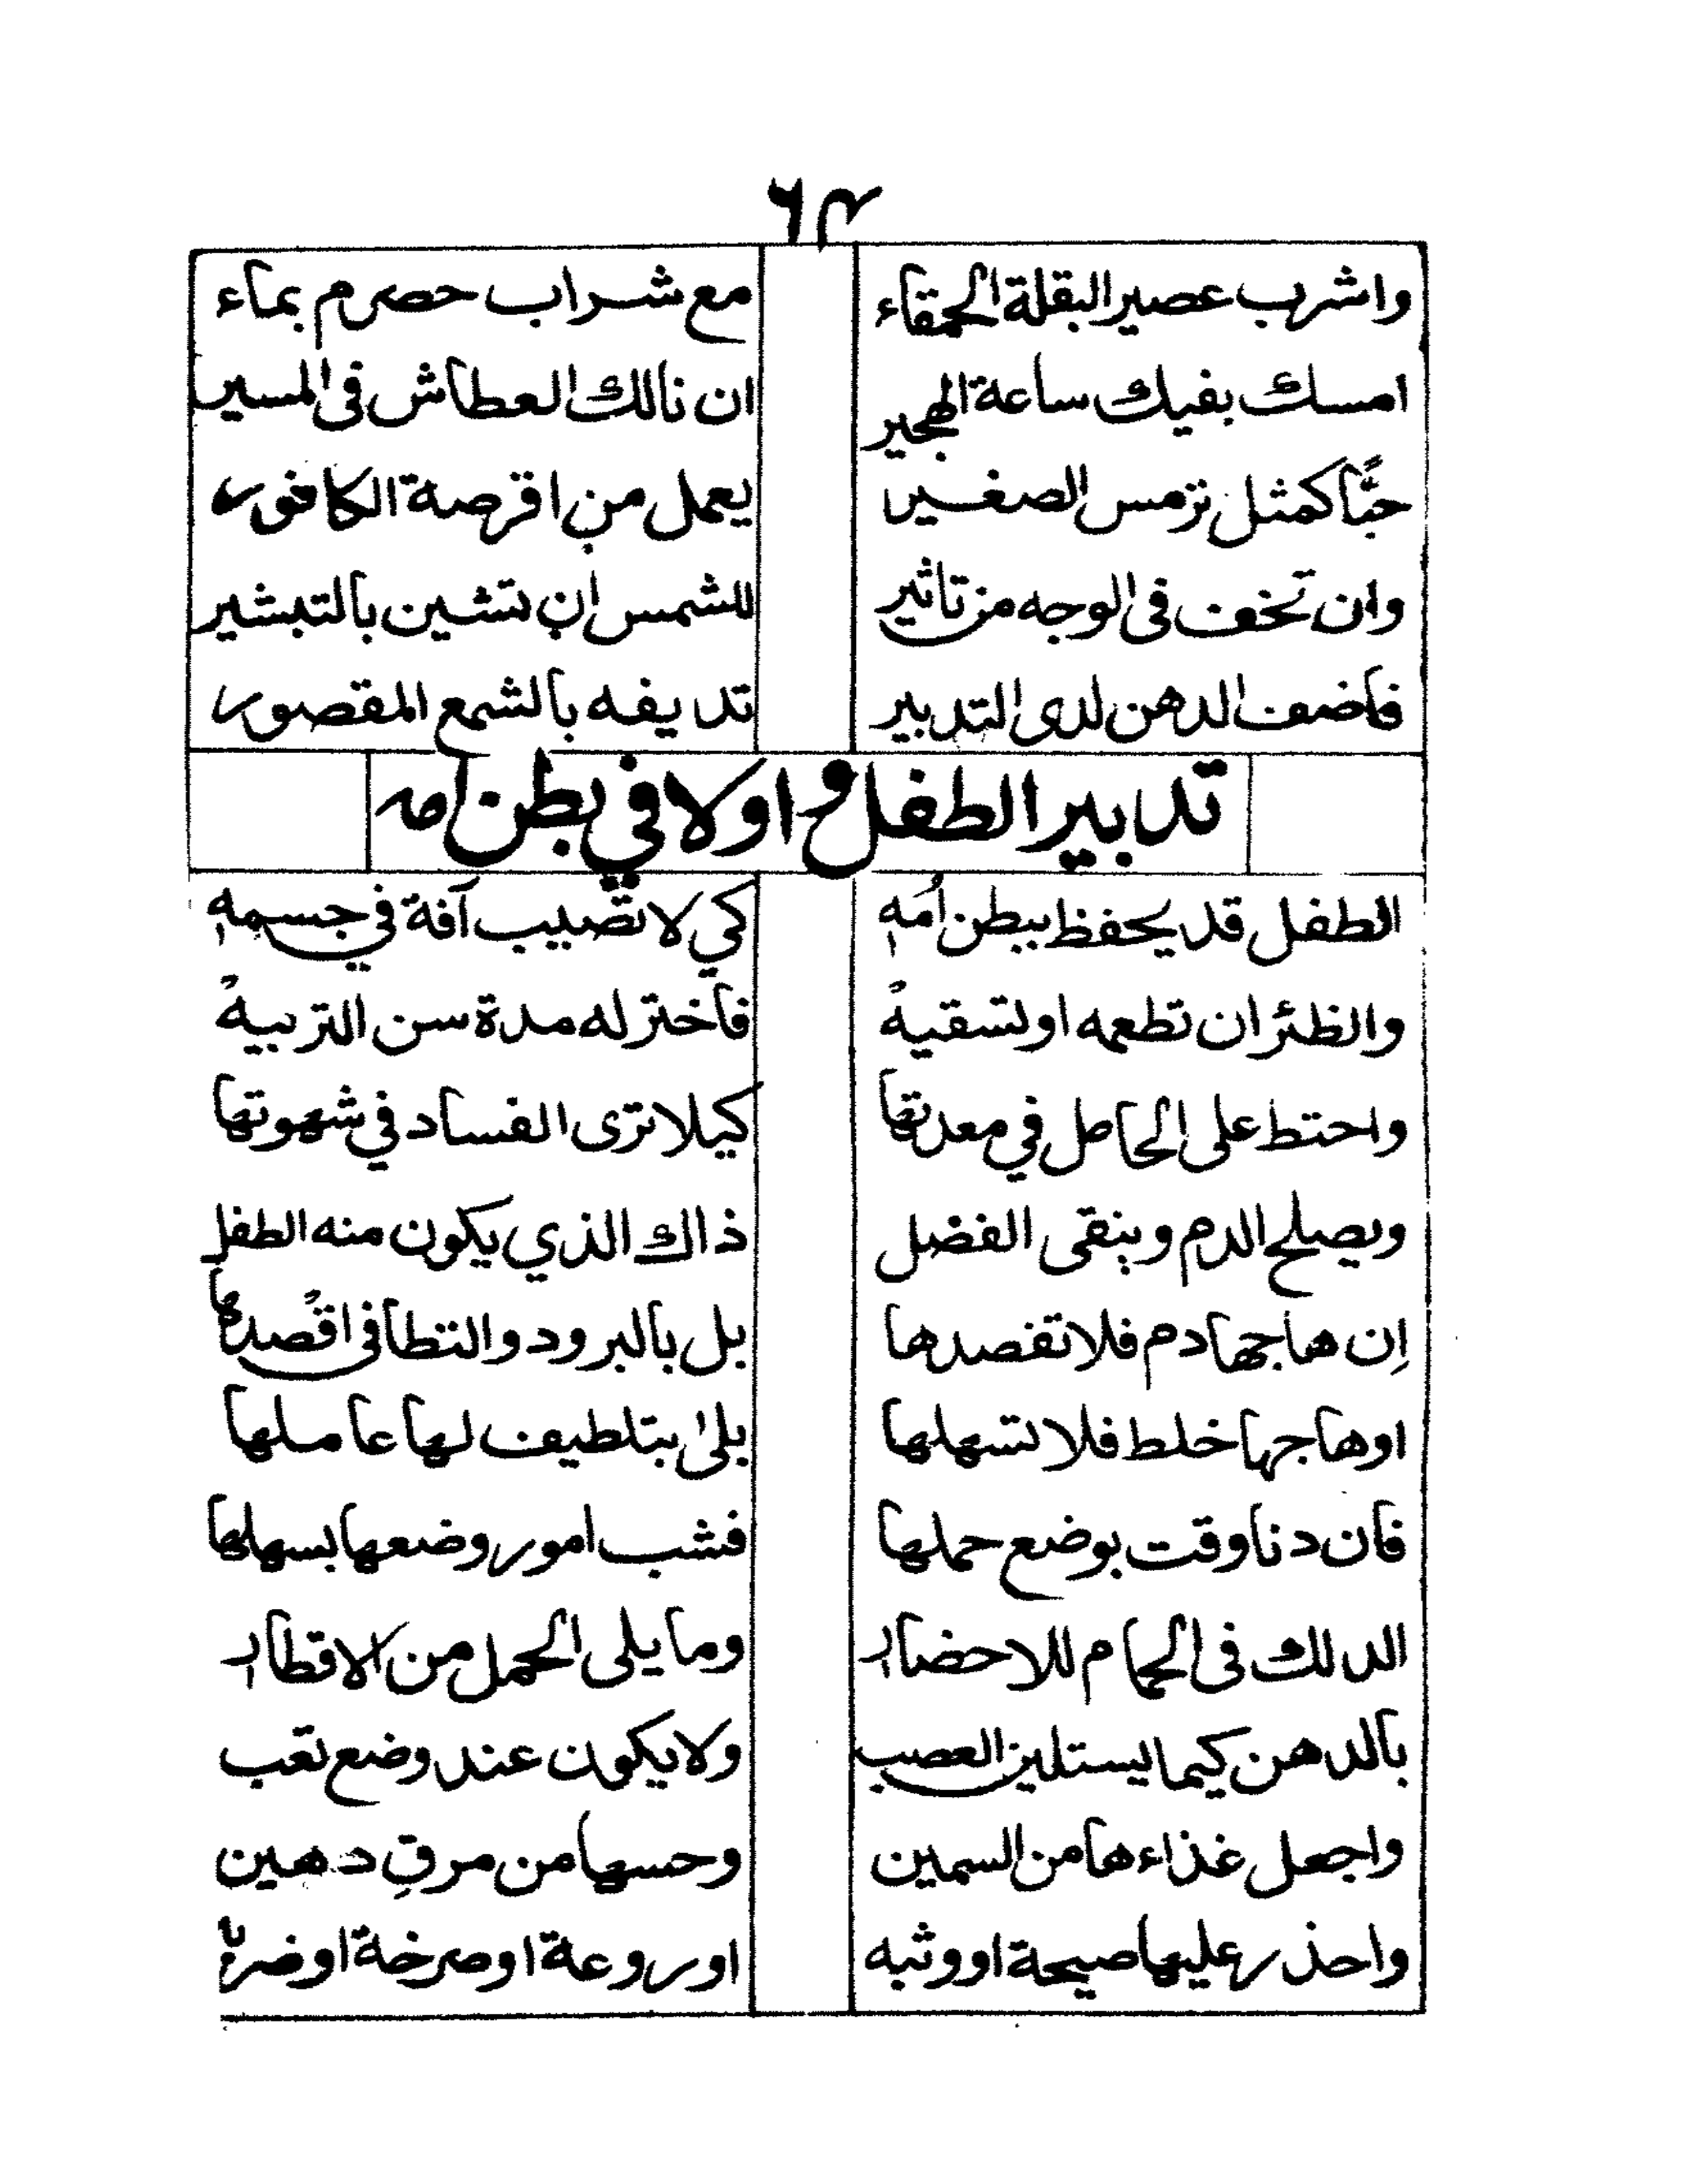 ٦٤
واشرب عصير البقلة الحمقاء مع شراب حصرم بماء
امسك بفيك ساعة الهجير ان نالك العطاش فى المسير
حبًّا كمثل ترمس الصغير يعمل من اقرصة الكافور
وان تخف فى الوجه من تاثير للشمس ان تشين بالتبشير
فاضف الدهن لدى التدبير تديفه بالشمع المقصور
تدبير الطفل و اولا في بطن امه
الطفل قد يحفظ ببطن اُمه كي لا تصيب آفة في جسمه
والظئر ان تطعمه او تسقيهْ فاختر له مدة سن التربيهْ
واحتط على الحامل في معدتها كيلا ترى الفساد في شهوتها
ويصلح الدم وينقى الفضل ذاك الذي يكون منه الطفل
اِن هاجها دم فلا تفصدها بل بالبرود والتطافى اقْصدها
اوهاجها خلط فلا تسهلها بلىٰ بتلطيف لها عاملها
فان دنا وقت بوضع حملها فشب امور وضعها بسهلها
الدالك فى الحمام للاحضار وما يلى الحمل من الاقطار
بالدهن كيما يستلين العصب ولا يكون عند وضع تعب
واجعل غذاءها من السمين وحسها من مرقٍ دهين
واحذر عليها صيحة او وثبه او روعة او صرخة او ضربه